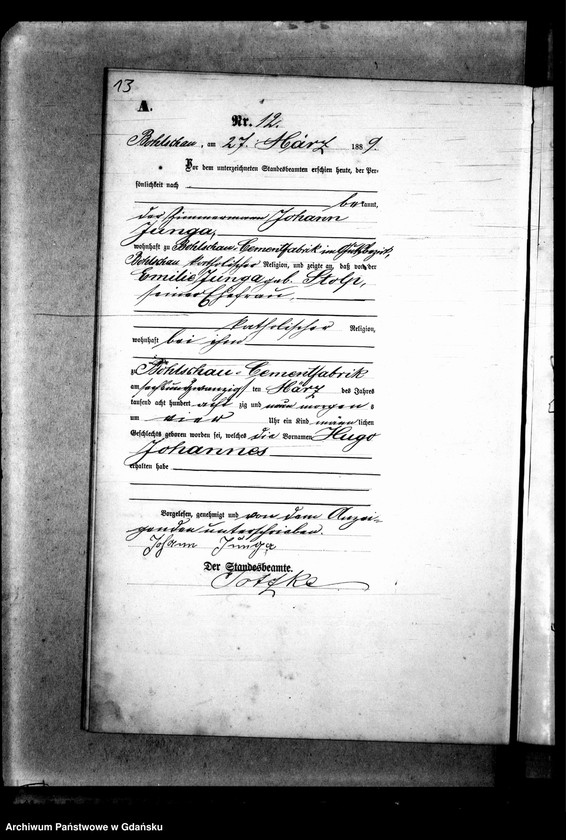 13
A.
Nr. 12.
Bohlschau, am 27. März 1889.
Vor dem unterzeichneten Standesbeamten erschien heute, der Per-
sönlichkeit nach
bekannt,
der Zimmermann Johann
Junga,
wohnhaft zu Bohlschau-Cementfabrik im Gutsbezirk,
Bohlschau katholischer Religion, und zeigte an, daß von der
Emilie Junga geb. Stolp,
seiner Ehefrau,
katholischer Religion,
wohnhaft bei ihm
zu Bohlschau-Cementfabrik
am sechsundzwanzigsten März des Jahres
tausend acht hundert achtzig und neun morgens
um vier Uhr ein Kind männlichen
Geschlechts geboren worden sei, welches die Vornamen Hugo
Johannes
erhalten habe
Vorgelesen, genehmigt und von dem Anzei-
genden unterschrieben.
Johann Junga
Der Standesbeamte.
Archiwum Państwowe w Gdańsku